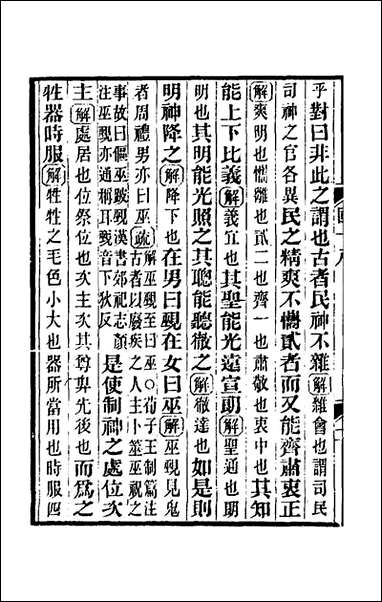 乎對曰非此之謂也古者民神不雜解雜會也謂司民
司神之官各異民之精爽不懏貳者而又能齊肅衷正
解爽明也懏離也貳二也齊一也肅敬也衷中也其知
能上下比義解義宜也其聖能光遠宣朗解聖通也朗
明也其明能光照之其聰能聽徹之解徹達也如是則
明神降之解降下也在男曰覡在女曰巫解巫覡見鬼
者周禮男亦曰巫疏解巫覡至曰巫○荀子王制篇注
古者以廢疾之人主卜筮巫祝之
事故曰傴巫跛覡漢書郊祀志顏
注巫覡亦通稱耳覡音下狄反
是使制神之處位次
主解處居也位祭位也次主次其尊卑先後也而爲之
牲器時服解牲牲之毛色小大也器所當用也時服四